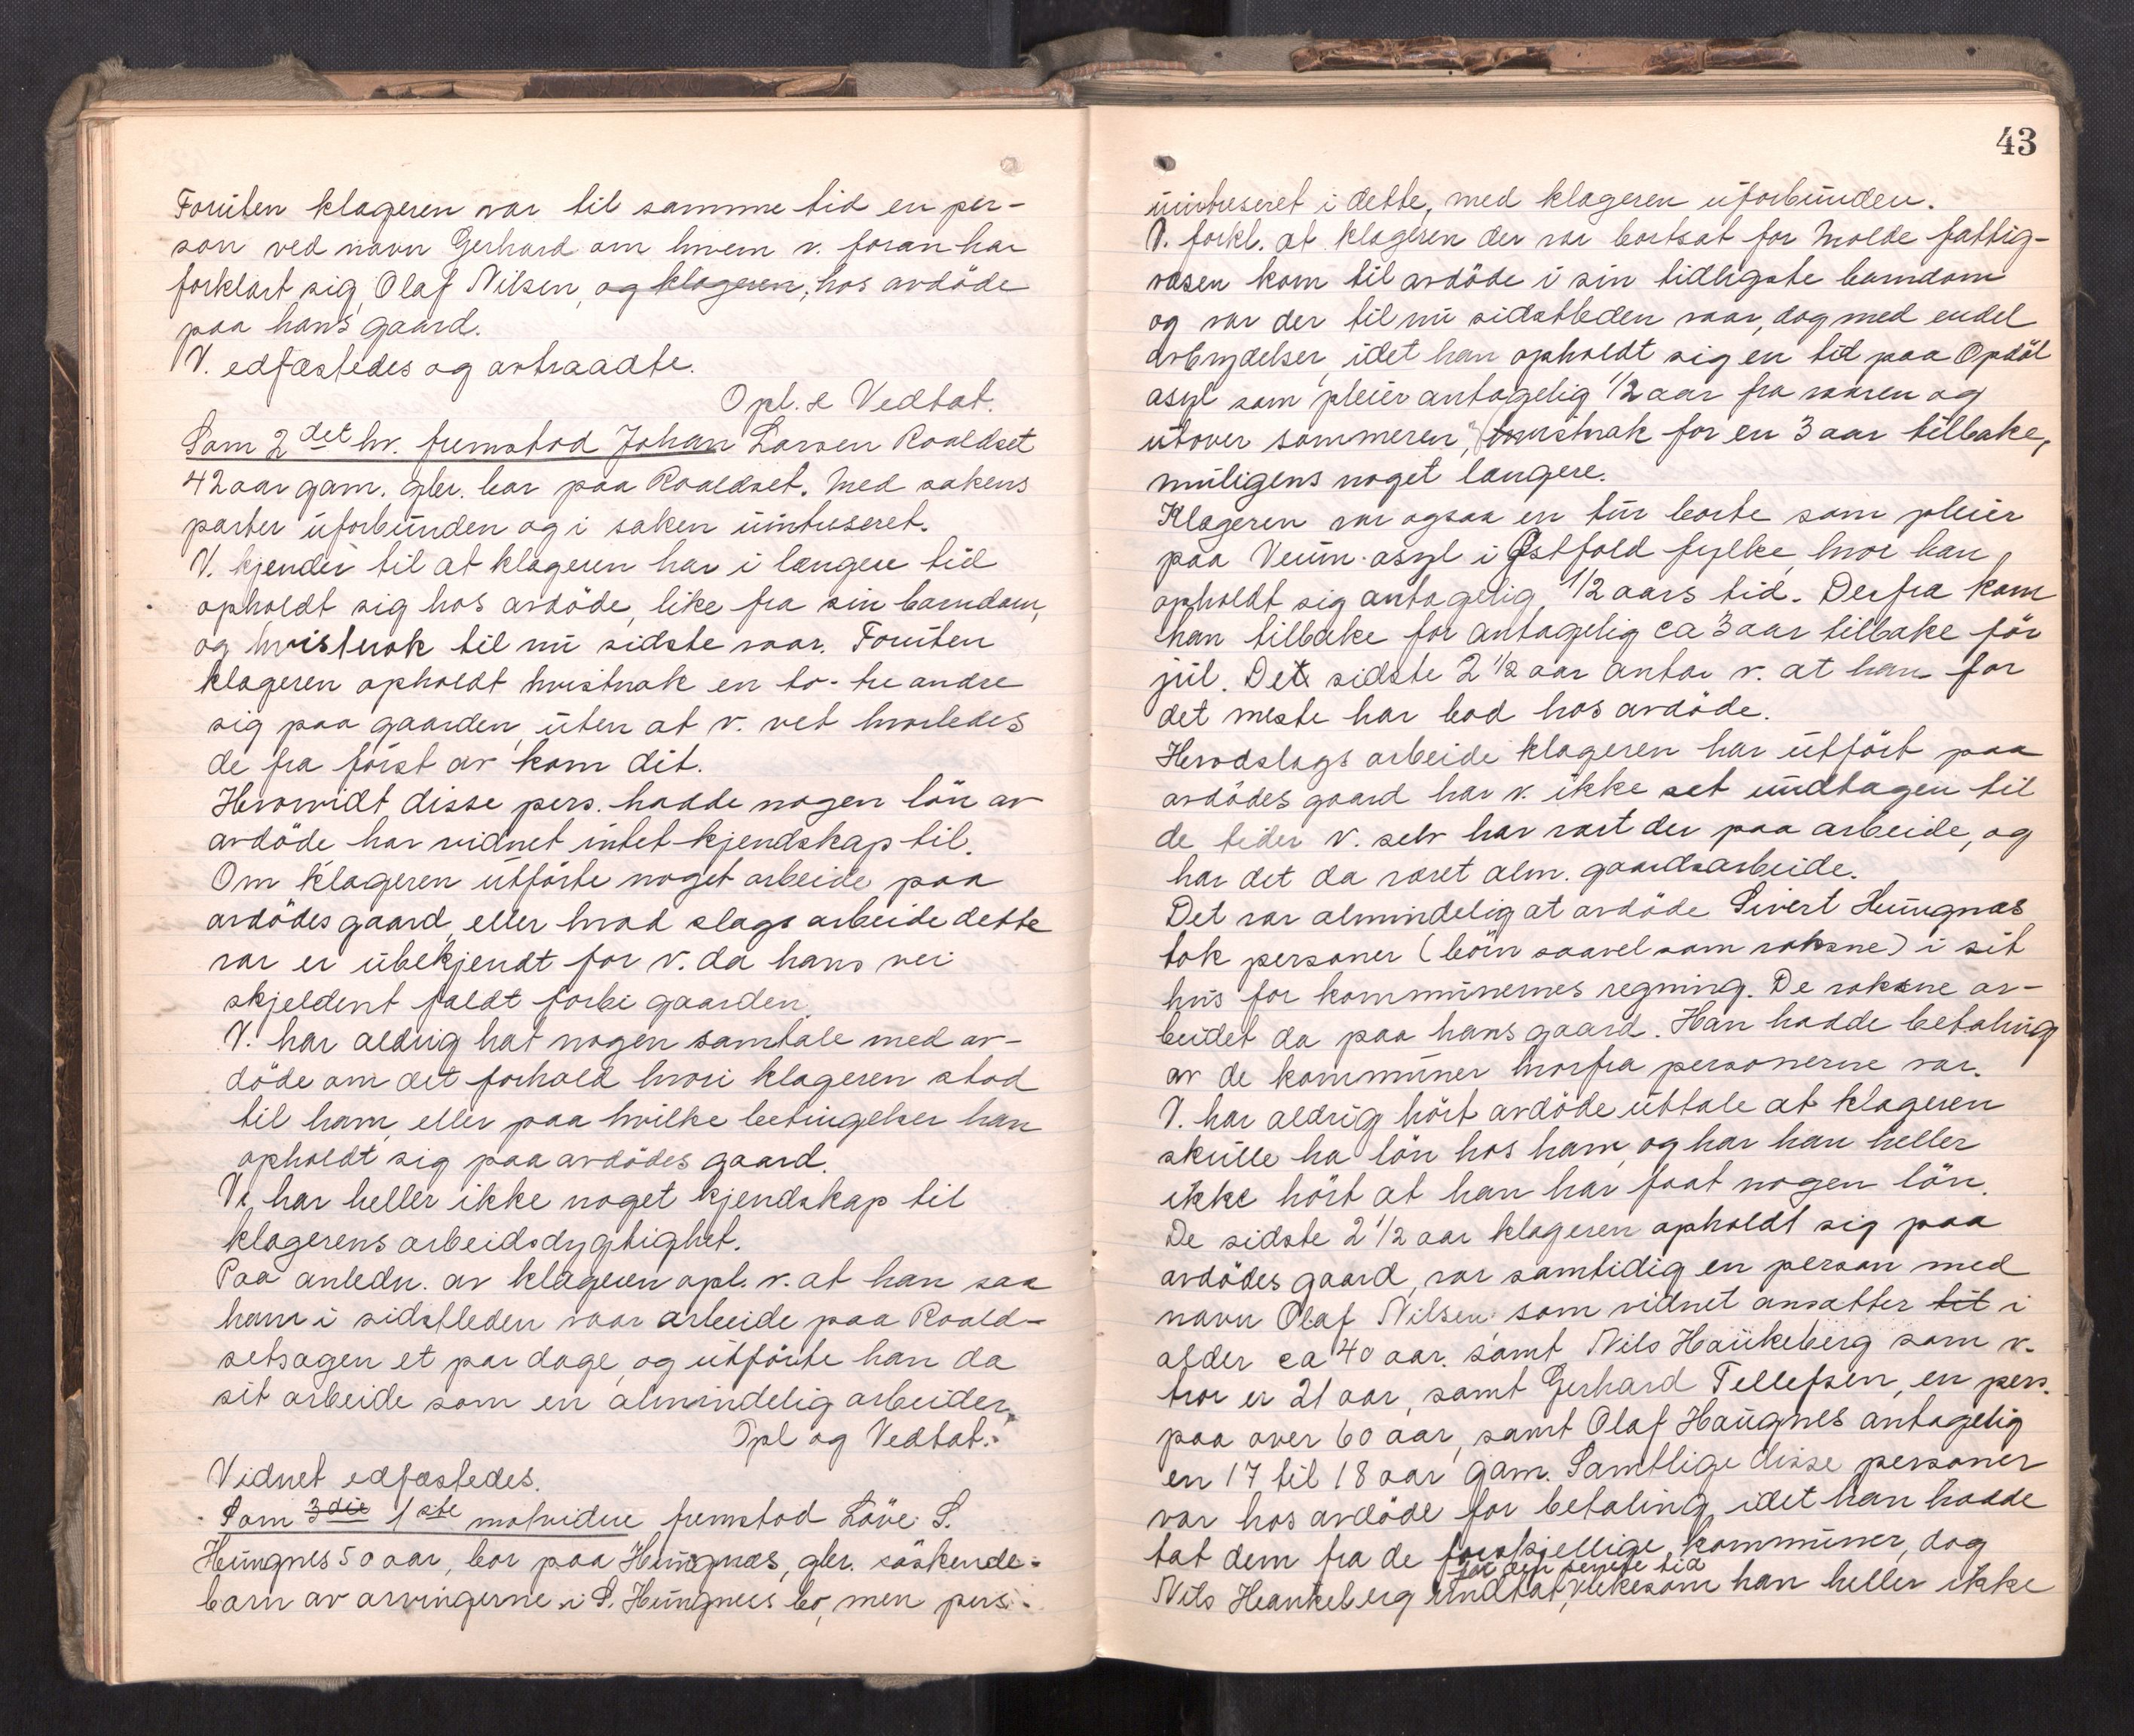 Foruten klageren var til samme tid en per-
son ved navn Gerhard om hvem v. foran har
forklart sig, Olaf Nilsen, og klageren, hos avdöde
paa hans gaard.
V. edfæstedes og avtraadte.
Opl. & Vedtat.
Som 2det hv. fremstod Johan Larsen Roaldset
42 aar gam. gbr. bor paa Roaldset. Med sakens
parter uforbunden og i saken uintreseret.
V. kjender til at klageren har i længere tid
opholdt sig hos avdöde, like fra sin barndom,
og hvistnok til nu sidste vaar. Foruten
klageren opholdt hvistnok en to-tre andre
sig paa gaarden, uten at v. vet hvorledes
de fra först av kom dit.
Hvorvidt disse pers. hadde nogen lön av
avdöde har vidnet intet kjendskap til.
Om klageren utförte noget arbeide paa
avdödes gaard, eller hvad slags arbeide dette
var er ubekjendt for v. da hans vei
skjeldent faldt forbi gaarden.
V. har aldrig hat nogen samtale med av-
döde om det forhold hvori klageren stod
til ham, eller paa hvilke betingelser han
opholdt sig paa avdödes gaard.
V. har heller ikke noget kjendskap til
klagerens arbeidsdygtighet.
Paa anledn. av klageren opl. v. at han saa
ham i sidstleden vaar arbeide paa Roald-
setsagen et par dage, og utförte han da
sit arbeide som en almindelig arbeider.
Opl og Vedtat.
Vidnet edfæstedes.
Som 3die 1ste motvidne fremstod Löve S.
Hungnes 50 aar, bor paa Hungnæs, gbr. söskende-
barn av arvingerne i S. Hungnes bo, men pers.
43
uintreseret i dette, med klageren uforbunden.
V. forkl. at klageren der var bortsat for Molde fattig-
væsen kom til avdöde i sin tidligste barndom
og var der til nu sidstleden vaar, dog med endel
avbrydelser, idet han opholdt sig en tid paa Opdöl
asyl som pleier antagelig 1/2 aar fra vaaren og
utover sommeren, hvistnok for en 3 aar tilbake,
muligens noget længere.
Klageren var ogsaa en tur borte som pleier
paa Veum asyl i Østfold fylke, hvor han
opholdt sig antagelig 1/2 aars tid. Derfra kom
han tilbake for antagelig ca 3 aar tilbake för
jul. Det sidste 2 1/2 aar antar v. at han for
det meste har bod hos avdöde.
Hvodslags arbeide klageren har utfört paa
avdödes gaard har v. ikke set undtagen til
de tider v. selv har vært der paa arbeide, og
har det da været alm. gaardsarbeide.
Det var almindelig at avdöde Sivert Hungnæs
tok personer (börn saavel som voksne) i sit
hus for kommunernes regning. De voksne ar-
beidet da paa hans gaard. Han hadde betaling
av de kommuner hvorfra personerne var.
V. har aldrig hört avdöde uttale at klageren
skulle ha lön hos ham, og har han heller
ikke hört at han har faat nogen lön.
De sidste 2 1/2 aar klageren opholdt sig paa
avdödes gaard, var samtidig en person med
navn Olaf Nilsen, som vidnet ansatter tit i
alder ca 40 aar. samt Nils Haukeberg som v.
tror er 21 aar, samt Gerhard Tellefsen, en pers.
paa over 60 aar, samt Olaf Haugnes antagelig
en 17 til 18 aar gam. Samtlige disse personer
var hos avdöde for betaling, idet han hadde
tat dem fra de forskjellige kommuner, dog
for den senere tid
Nils Heankeberg undtat, hvilkesom han heller ikke